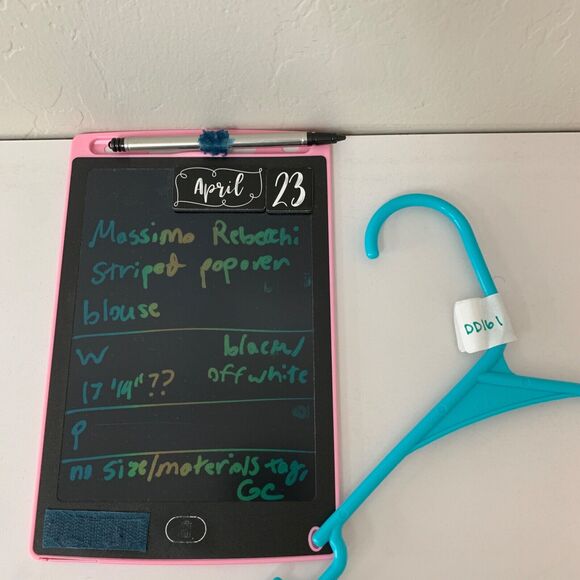 April 23
Massimo Rebecchi
Striped popover
blouse
W black/
17 "19"?? off white
P
no size/materials tag,
GC
DD161